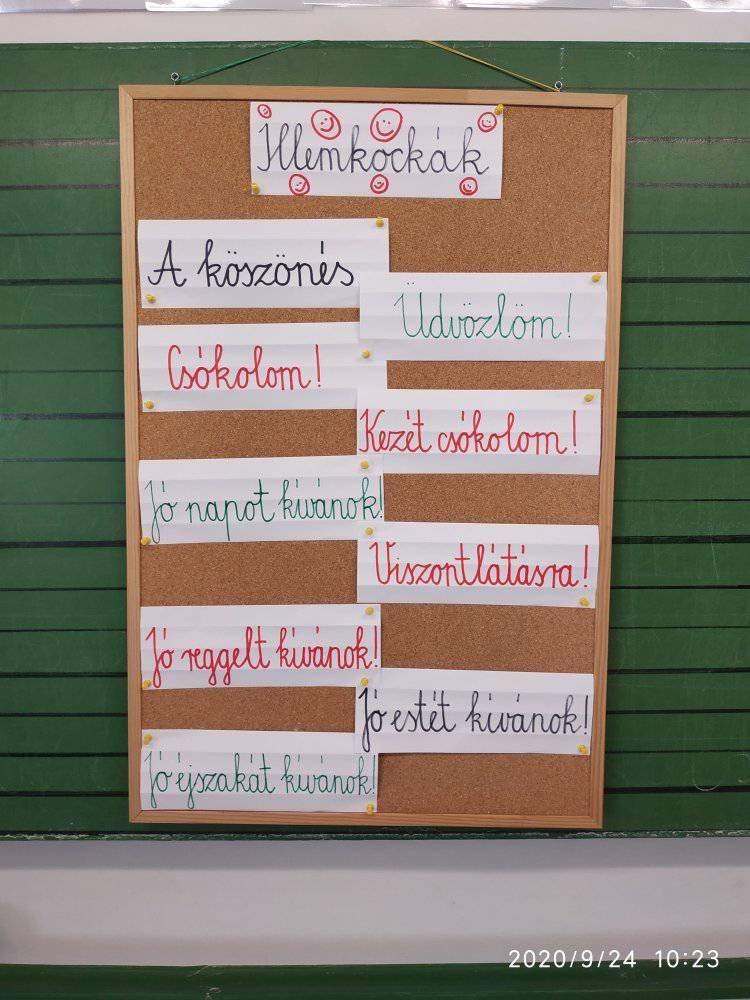 Illemkockák
A köszönés
Üdvözlöm!
Csókolom!
Kezét csókolom!
Jó napot kívánok!
Viszontlátásra!
Jó reggelt kívánok!
Jó estét kívánok!
Jó éjszakát kívánok!
2020/9/24 10:23